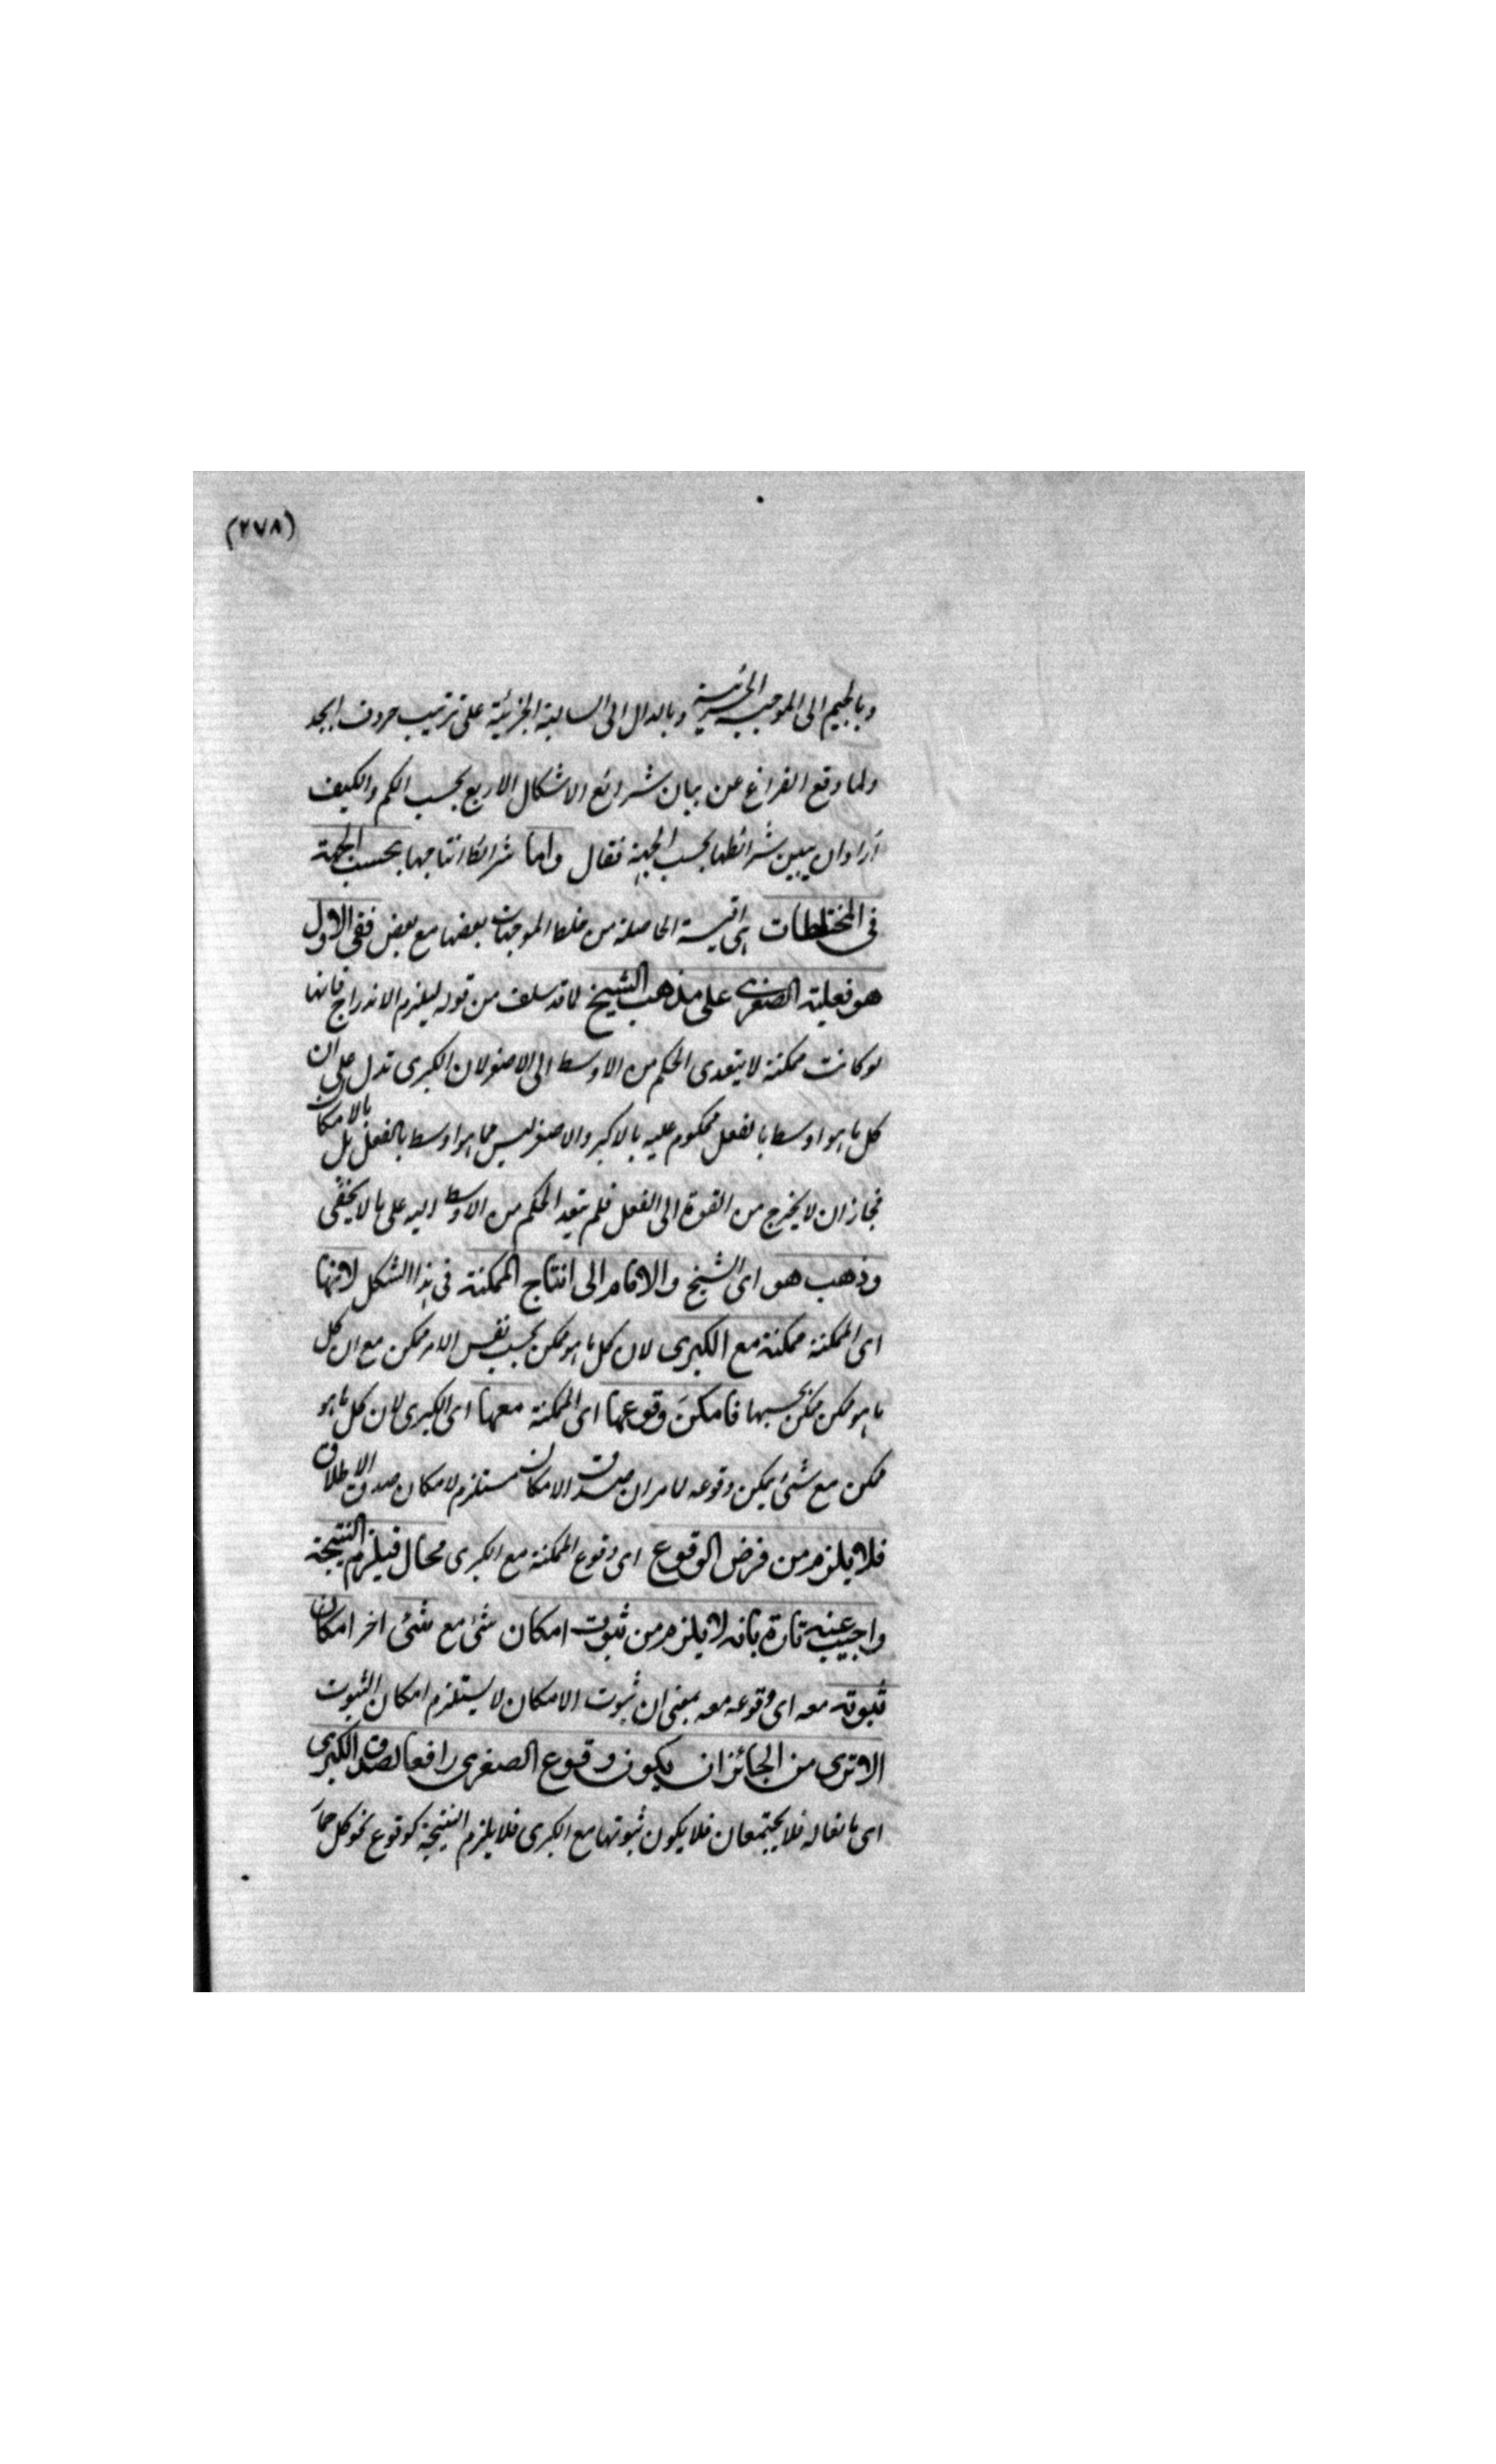 (٢٧٨)
وبالجيم الى الموجبة الجزئية وبالدال الى السالبة الجزئية على ترتيب حروف ابجد
ولما وقع الفراغ عن بيان شرائع الاشكال الاربع بحسب الكم والكيف
اراد ان يبين شرائطها بحسب الجهة فقال واما شرائط انتاجها بحسب الجهة
في المختلطات هي اقيسة الحاصلة من خلط الموجهات بعضها مع بعض ففي الاول
هو فعلية الصغرى على مذهب الشيخ لما قد سلف من قوله ليلزم الاندراج فانها
لو كانت ممكنة لا يتعدى الحكم من الاوسط الى الاصغر لان الكبرى تدل على ان
كل ما هو اوسط بالفعل محكوم عليه بالاكبر والاصغر ليس مما هو اوسط بالفعل بل بالامكان
فجاز ان لا يخرج من القوة الى الفعل فلم يتعد الحكم من الاوسط اليه على ما لا يخفى
وذهب هو اى الشيخ والامام الى انتاج الممكنة في هذا الشكل لانها
اى الممكنة ممكنة مع الكبرى لان كل ما هو ممكن بحسب نفس الامر ممكن مع ان كل
ما هو ممكن ممكن بحسبها فامكن وقوعها اى الممكنة معها اى الكبرى لان كل ما هو
ممكن مع شئ يمكن وقوعه لما مر ان صدق الامكان مستلزم لامكان صدق الاطلاق
فلا يلزم من فرض الوقوع اى وقوع الممكنة مع الكبرى محال فيلزم النتيجة
واجيب عنه تارة بانه لا يلزم من ثبوت امكان شئ مع شئ اخر امكان
ثبوته معه اى وقوعه معه بمعنى ان ثبوت الامكان لا يستلزم امكان الثبوت
الا ترى من الجائز ان يكون وقوع الصغرى رافعا لصدق الكبرى
اى مانعا له فلا يجتمعان فلا يكون ثبوتها مع الكبرى فلا يلزم النتيجة كوقوع نحو كل حمار